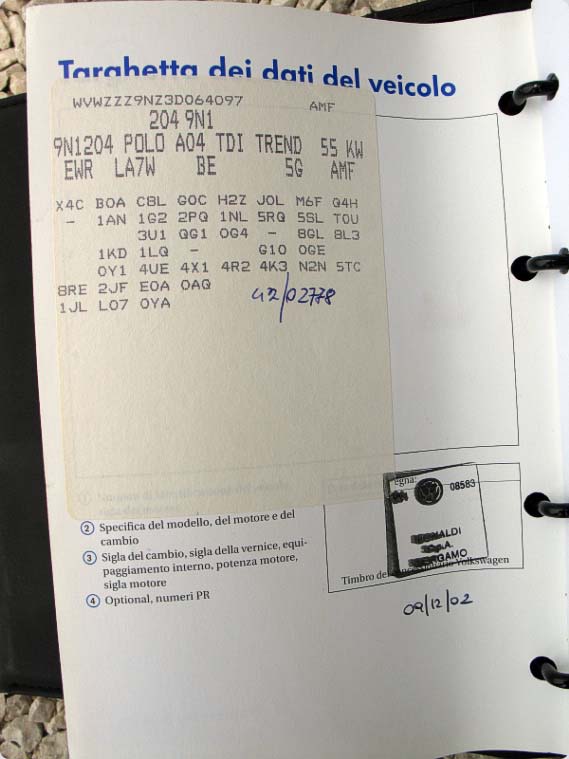 Targhetta dei dati del veicolo
WVWZZZ9NZ3D064097 AMF
204 9N1
9N1204 POLO A04 TDI TREND 55 KW
EWR LA7W BE 5G AMF
X4C B0A C8L G0C H2Z J0L M6F Q4H
- 1AN 1G2 2PQ 1NL 5RQ 5SL T0U
3U1 QG1 0G4 - 8GL 8L3
1KD 1LQ - G10 0GE
0Y1 4UE 4X1 4R2 4K3 N2N 5TC
8RE 2JF E0A 0AQ
1JL L07 0YA
42/02778
② Specifica del modello, del motore e del
cambio
③ Sigla del cambio, sigla della vernice, equi-
paggiamento interno, potenza motore,
sigla motore
④ Optional, numeri PR
egna:
08583
Volkswagen
Timbro
09/12/02